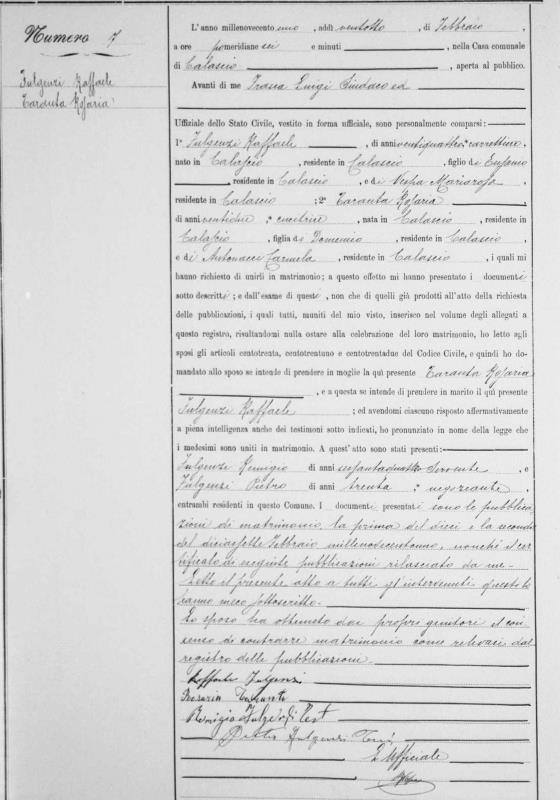 Numero 7
Fulgenzi Raffaele
Taranta Rosaria
L'anno millenovecento uno, addì ventotto, di Febbraio,
a ore pomeridiane sei e minuti, nella Casa comunale
di Calascio, aperta al pubblico.
Avanti di me Frasca Luigi Sindaco ed
Uffiziale dello Stato Civile, vestito in forma uffiziale, sono personalmente comparsi:
1° Fulgenzi Raffaele, di anni ventiquattro, carrettiere
nato in Calascio, residente in Calascio, figlio di
residente in Calascio, e di Vespa Mariarosa
residente in Calascio; 2° Taranta Rosaria
di anni ventidue cucitrice, nata in Calascio, residente in
Calascio, figlia di Domenico, residente in Calascio,
e di Antonacci Carmela, residente in Calascio, i quali mi
hanno richiesto di unirli in matrimonio; a questo effetto mi hanno presentato i documenti
sotto descritti; e dall'esame di questi, non che di quelli già prodotti all'atto della richiesta
delle pubblicazioni, i quali tutti, muniti del mio visto, inserisco nel volume degli allegati a
questo registro, risultandomi nulla ostare alla celebrazione del loro matrimonio, ho letto agli
sposi gli articoli centotrenta, centotrentuno e centotrentadue del Codice Civile, e quindi ho do-
mandato allo sposo se intende di prendere in moglie la quì presente Taranta Rosaria
, e a questa se intende di prendere in marito il quì presente
Fulgenzi Raffaele; ed avendomi ciascuno risposto affermativamente
a piena intelligenza anche dei testimoni sotto indicati, ho pronunziato in nome della legge che
i medesimi sono uniti in matrimonio. A quest'atto sono stati presenti:
Fulgenzi Remigio di anni sessantaquattro Servente, e
Fulgenzi Pietro di anni trenta negoziante,
entrambi residenti in questo Comune. I documenti presentati sono le pubblica
zioni di matrimonio, la prima del dieci e la seconda
del diciassette Febbraio millenovecentouno, nonchè il cer
tificato di eseguite pubblicazioni rilasciato da me.
Letto il presente atto a tutti gl'intervenuti questi lo
hanno meco sottoscritto.
Lo sposo ha ottenuto dai proprî genitori il con
senso di contrarre matrimonio come rilevasi dal
registro delle pubblicazioni
Raffaele Fulgenzi
Rosaria Taranta
Remigio Fulgenzi Test
Pietro Fulgenzi
L'Ufficiale